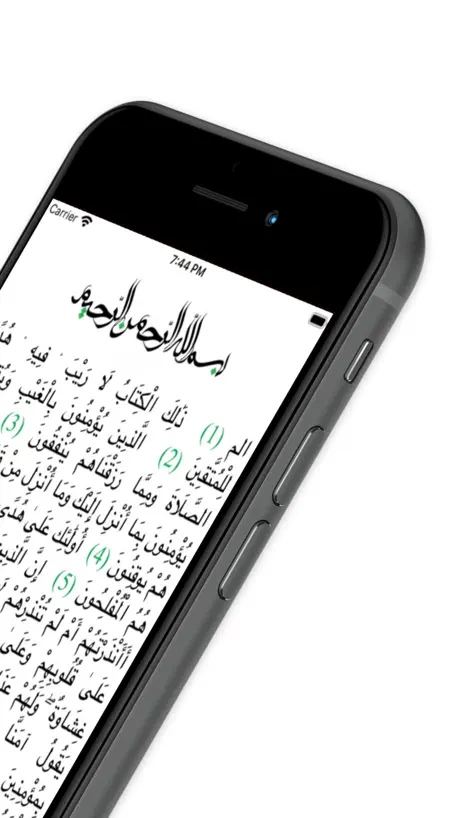 Carrier
7:44 PM
بسم الله الرحمن الرحيم
الم (1) ذَلِكَ الْكِتَابُ لَا رَيْبَ ۛ فِيهِ ۛ
لِلْمُتَّقِينَ (2) الَّذِينَ يُؤْمِنُونَ بِالْغَيْبِ
الصَّلَاةَ وَمِمَّا رَزَقْنَاهُمْ يُنْفِقُونَ (3)
يُؤْمِنُونَ بِمَا أُنْزِلَ إِلَيْكَ وَمَا أُنْزِلَ مِنْ
هُمْ يُوقِنُونَ (4) أُولَئِكَ عَلَى هُدًى
هُمُ الْمُفْلِحُونَ (5) إِنَّ الَّذِينَ
أَأَنْذَرْتَهُمْ أَمْ لَمْ تُنْذِرْهُمْ
عَلَى قُلُوبِهِمْ وَعَلَى
غِشَاوَةٌ ۖ وَلَهُمْ
يَقُولُ آمَنَّا
بِمُؤْمِنِينَ